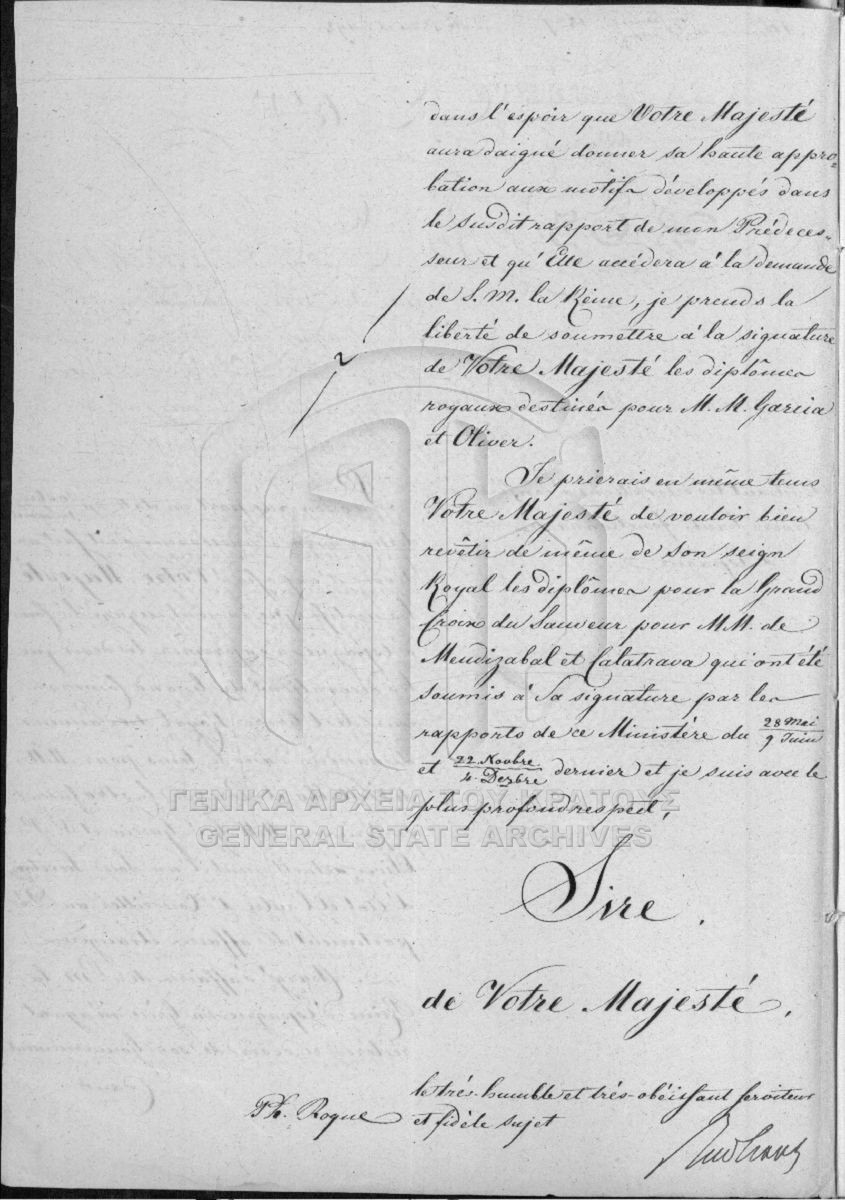 dans l'espoir que Votre Majesté
aura daigné donner sa haute appro-
bation aux motifs développés dans
le susdit rapport de mon Prédeces-
seur et qu'Elle accédera à la demande
de S. M. la Reine, je prends la
liberté de soumettre à la signature
de Votre Majesté les diplômes
royaux destinés pour M. M. Garcia
et Oliver.
Je prierais en même tems
Votre Majesté de vouloir bien
revêtir de même de Son seign
Royal les diplômes pour la Grand
Croix du Sauveur pour MM. de
Mendizabal et Calatrava qui ont été
soumis à Sa signature par les
rapports de ce Ministère du 28 Mai / 9 Juin
et 22 Novbre / 4 Dezbre dernier et je suis avec le
plus profond respect,
ΓΕΝΙΚΑ ΑΡΧΕΙΑ ΤΟΥ ΚΡΑΤΟΥΣ
GENERAL STATE ARCHIVES
Sire,
de Votre Majesté,
le très-humble et très-obéissant serviteur
et fidèle sujet
Ph. Roque